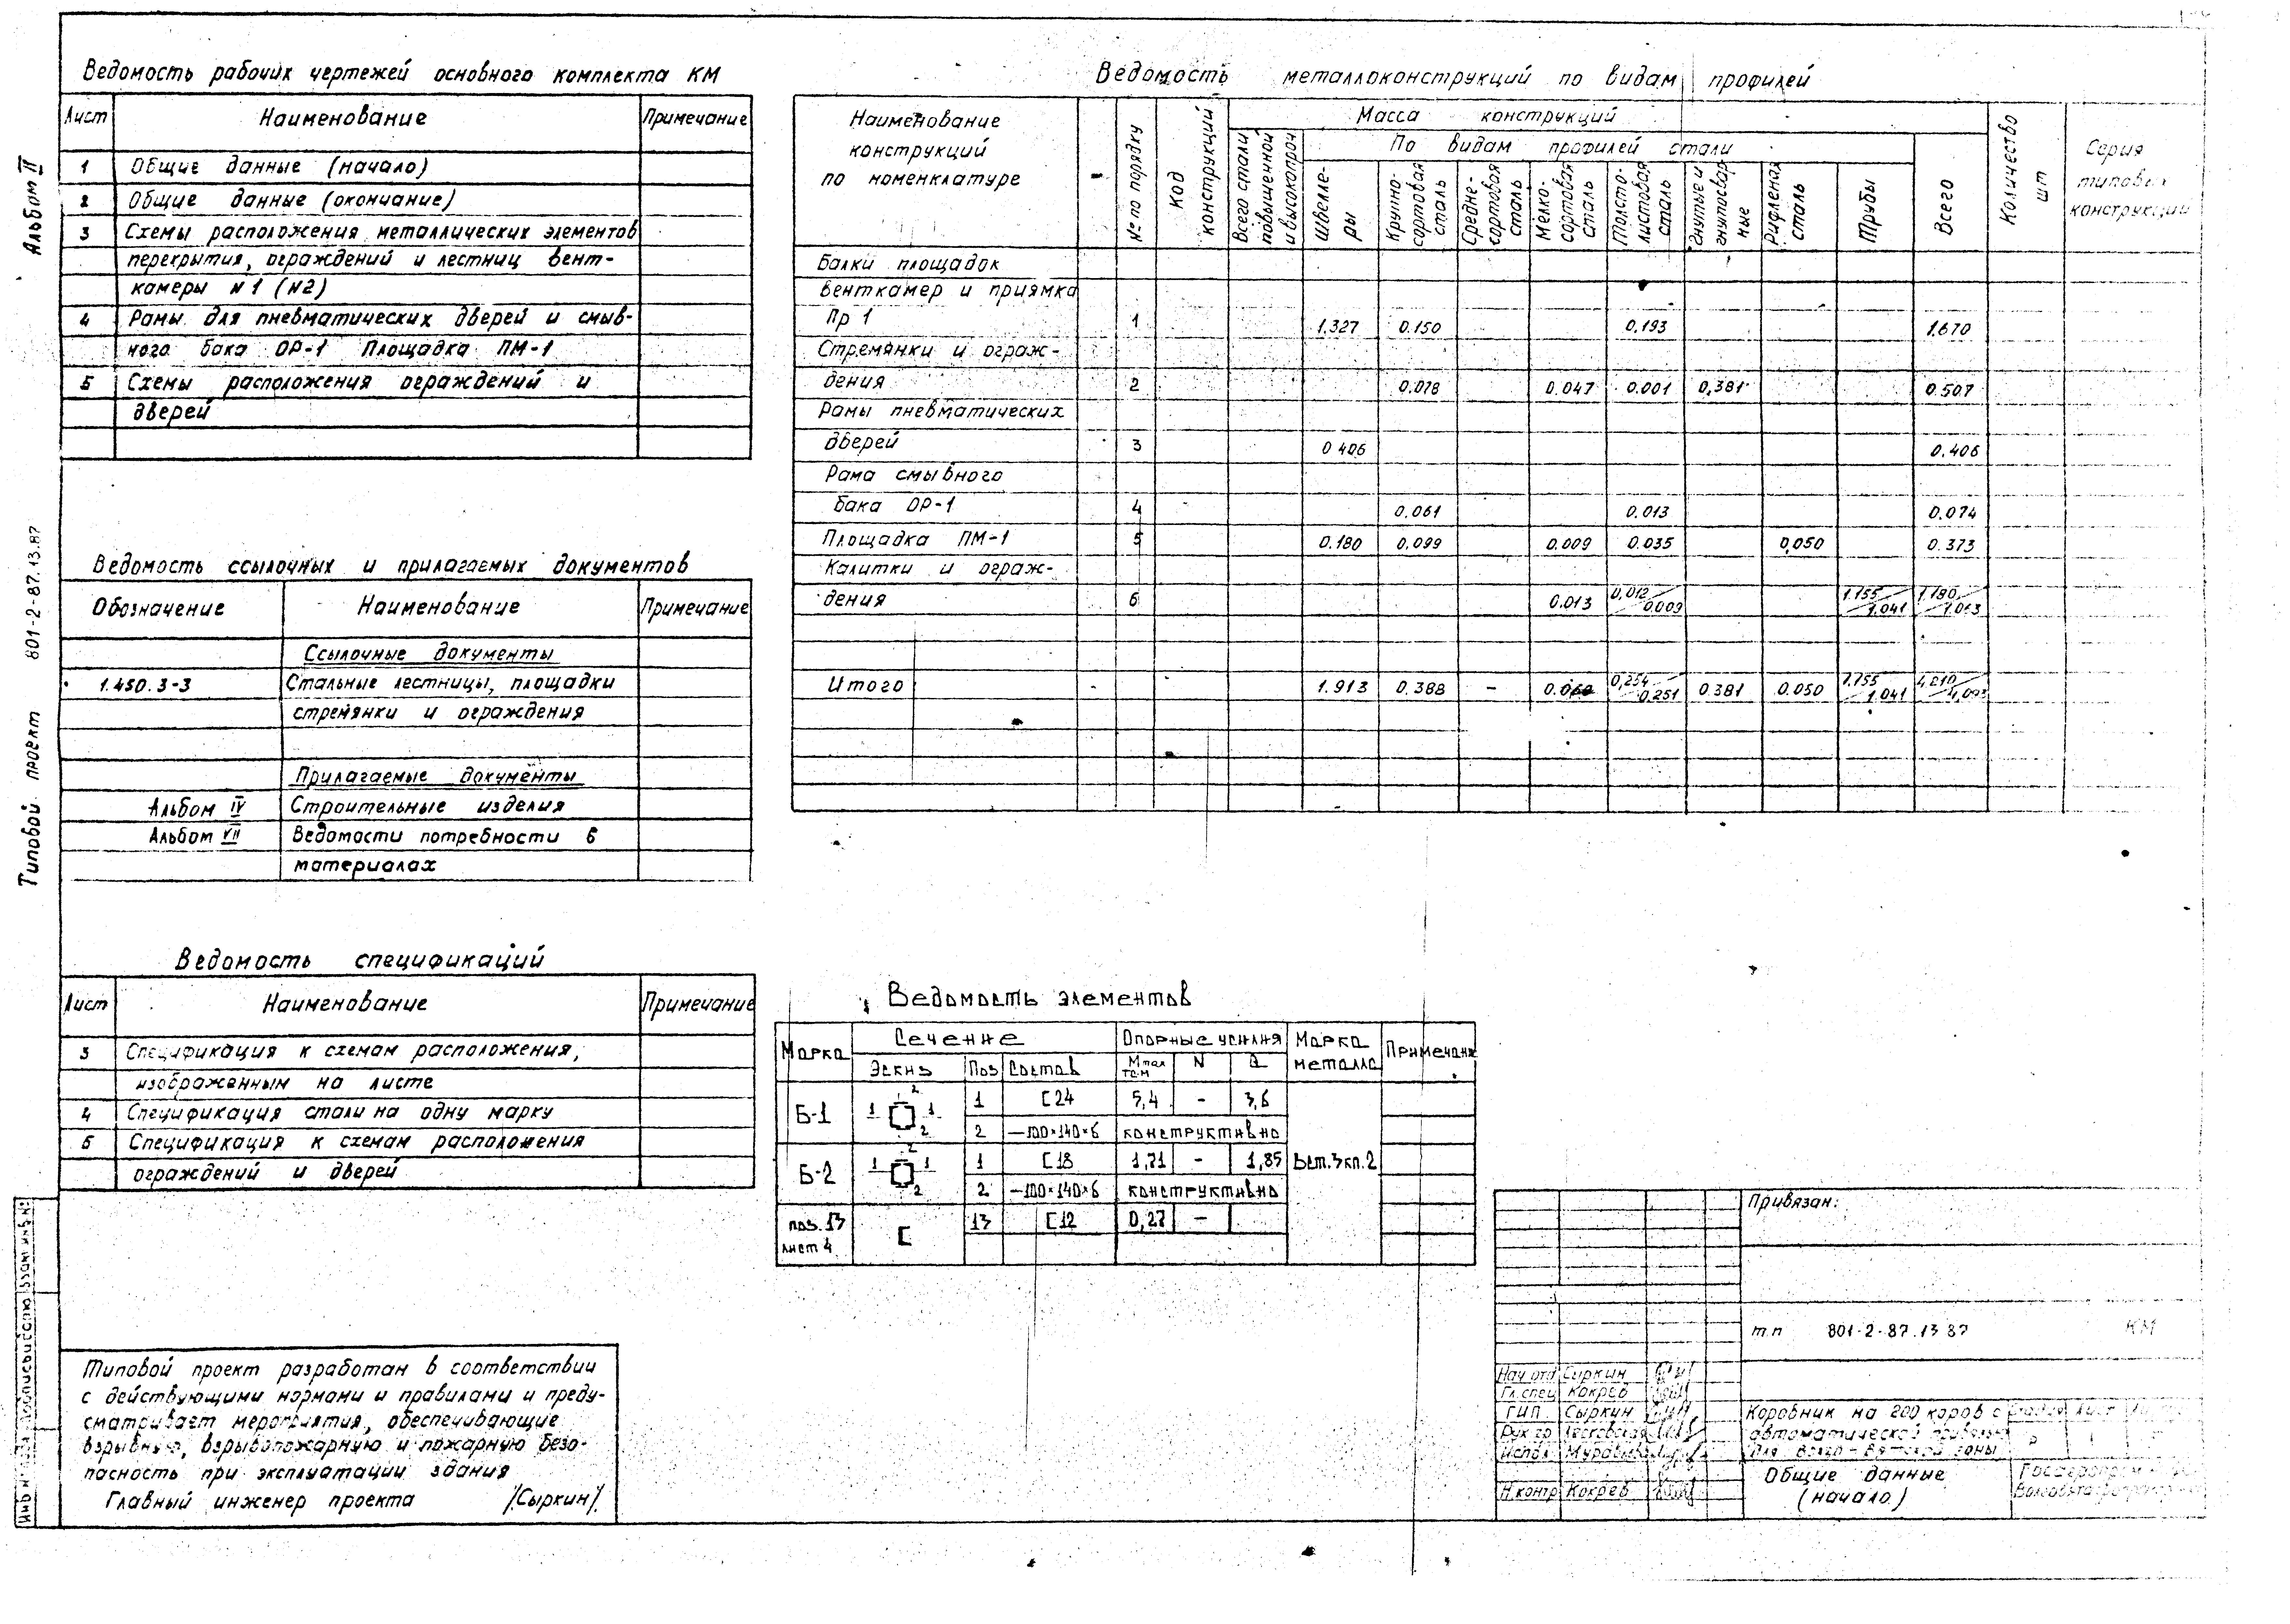 Альбом II
Типовой проект 801-2-87.13.87
Ведомость рабочих чертежей основного комплекта КМ
Лист Наименование Примечание
1 Общие данные (начало)
2 Общие данные (окончание)
3 Схемы расположения металлических элементов
перекрытия, ограждений и лестниц вент-
камеры N1 (N2)
4 Рамы для пневматических дверей и смыв-
ного бака ОР-1 Площадка ПМ-1
5 Схемы расположения ограждений и
дверей
Ведомость ссылочных и прилагаемых документов
Обозначение Наименование Примечание
Ссылочные документы
1.450.3-3 Стальные лестницы, площадки
стремянки и ограждения
Прилагаемые документы
Альбом IV Строительные изделия
Альбом VII Ведомости потребности в
материалах
Ведомость спецификаций
Лист Наименование Примечание
3 Спецификация к схемам расположения,
изображенным на листе
4 Спецификация стали на одну марку
5 Спецификация к схемам расположения
ограждений и дверей
Типовой проект разработан в соответствии
с действующими нормами и правилами и преду-
сматривает мероприятия, обеспечивающие
взрывную, взрывопожарную и пожарную безо-
пасность при эксплуатации здания
Главный инженер проекта /Сыркин/
Ведомость металлоконструкций по видам профилей
Наименование
конструкций
по номенклатуре
№ по порядку
Код
конструкций
Масса конструкций
Всего стали
повышенной
и высокопроч
По видам профилей стали
Швелле-
ры
Крупно-
сортовая
сталь
Средне-
сортовая
сталь
Мелко-
сортовая
сталь
Толсто-
листовая
сталь
Гнутые и
гнутосвар
ные
Рифленая
сталь
Трубы
Всего
Количество
шт
Серия
типовых
конструкций
Балки площадок
венткамер и приямка
Пр 1 1 1.327 0.150 0.193 1.670
Стремянки и ограж-
дения 2 0.078 0.047 0.001 0,381 0.507
Рамы пневматических
дверей 3 0 406 0.406
Рама смывного
бака ОР-1 4 0.061 0.013 0.074
Площадка ПМ-1 5 0.180 0.099 0.009 0.035 0,050 0.373
Калитки и ограж-
дения 6 0.013 0,012/0.009 1.755/1.041 1.780/1.063
Итого 1.913 0.388 - 0,254/0,251 0.381 0.050 1.755/1.041
Ведомость элементов
Марка Сечение Опорные усилия Марка
металла Примечани
Эскиз Поз Состав М тс.м N Q
Б-1 1 [24 5,4 - 3,6
2 —100×140×6 конструктивно
Б-2 1 [18 1,71 - 1,85 Вст.3кп.2
2 —100×140×6 конструктивно
поз.13
лист 4 [ 13 [12 0,27 -
Привязан:
т.п 801-2-87.13 87 КМ
Нач отд Сыркин
Гл.спец Кокрев
ГИП Сыркин
Рук гр
Испол
Н контр Кокрев
Коровник на 200 коров с
автоматической
для Волго-Вятской зоны
Общие данные
(начало)